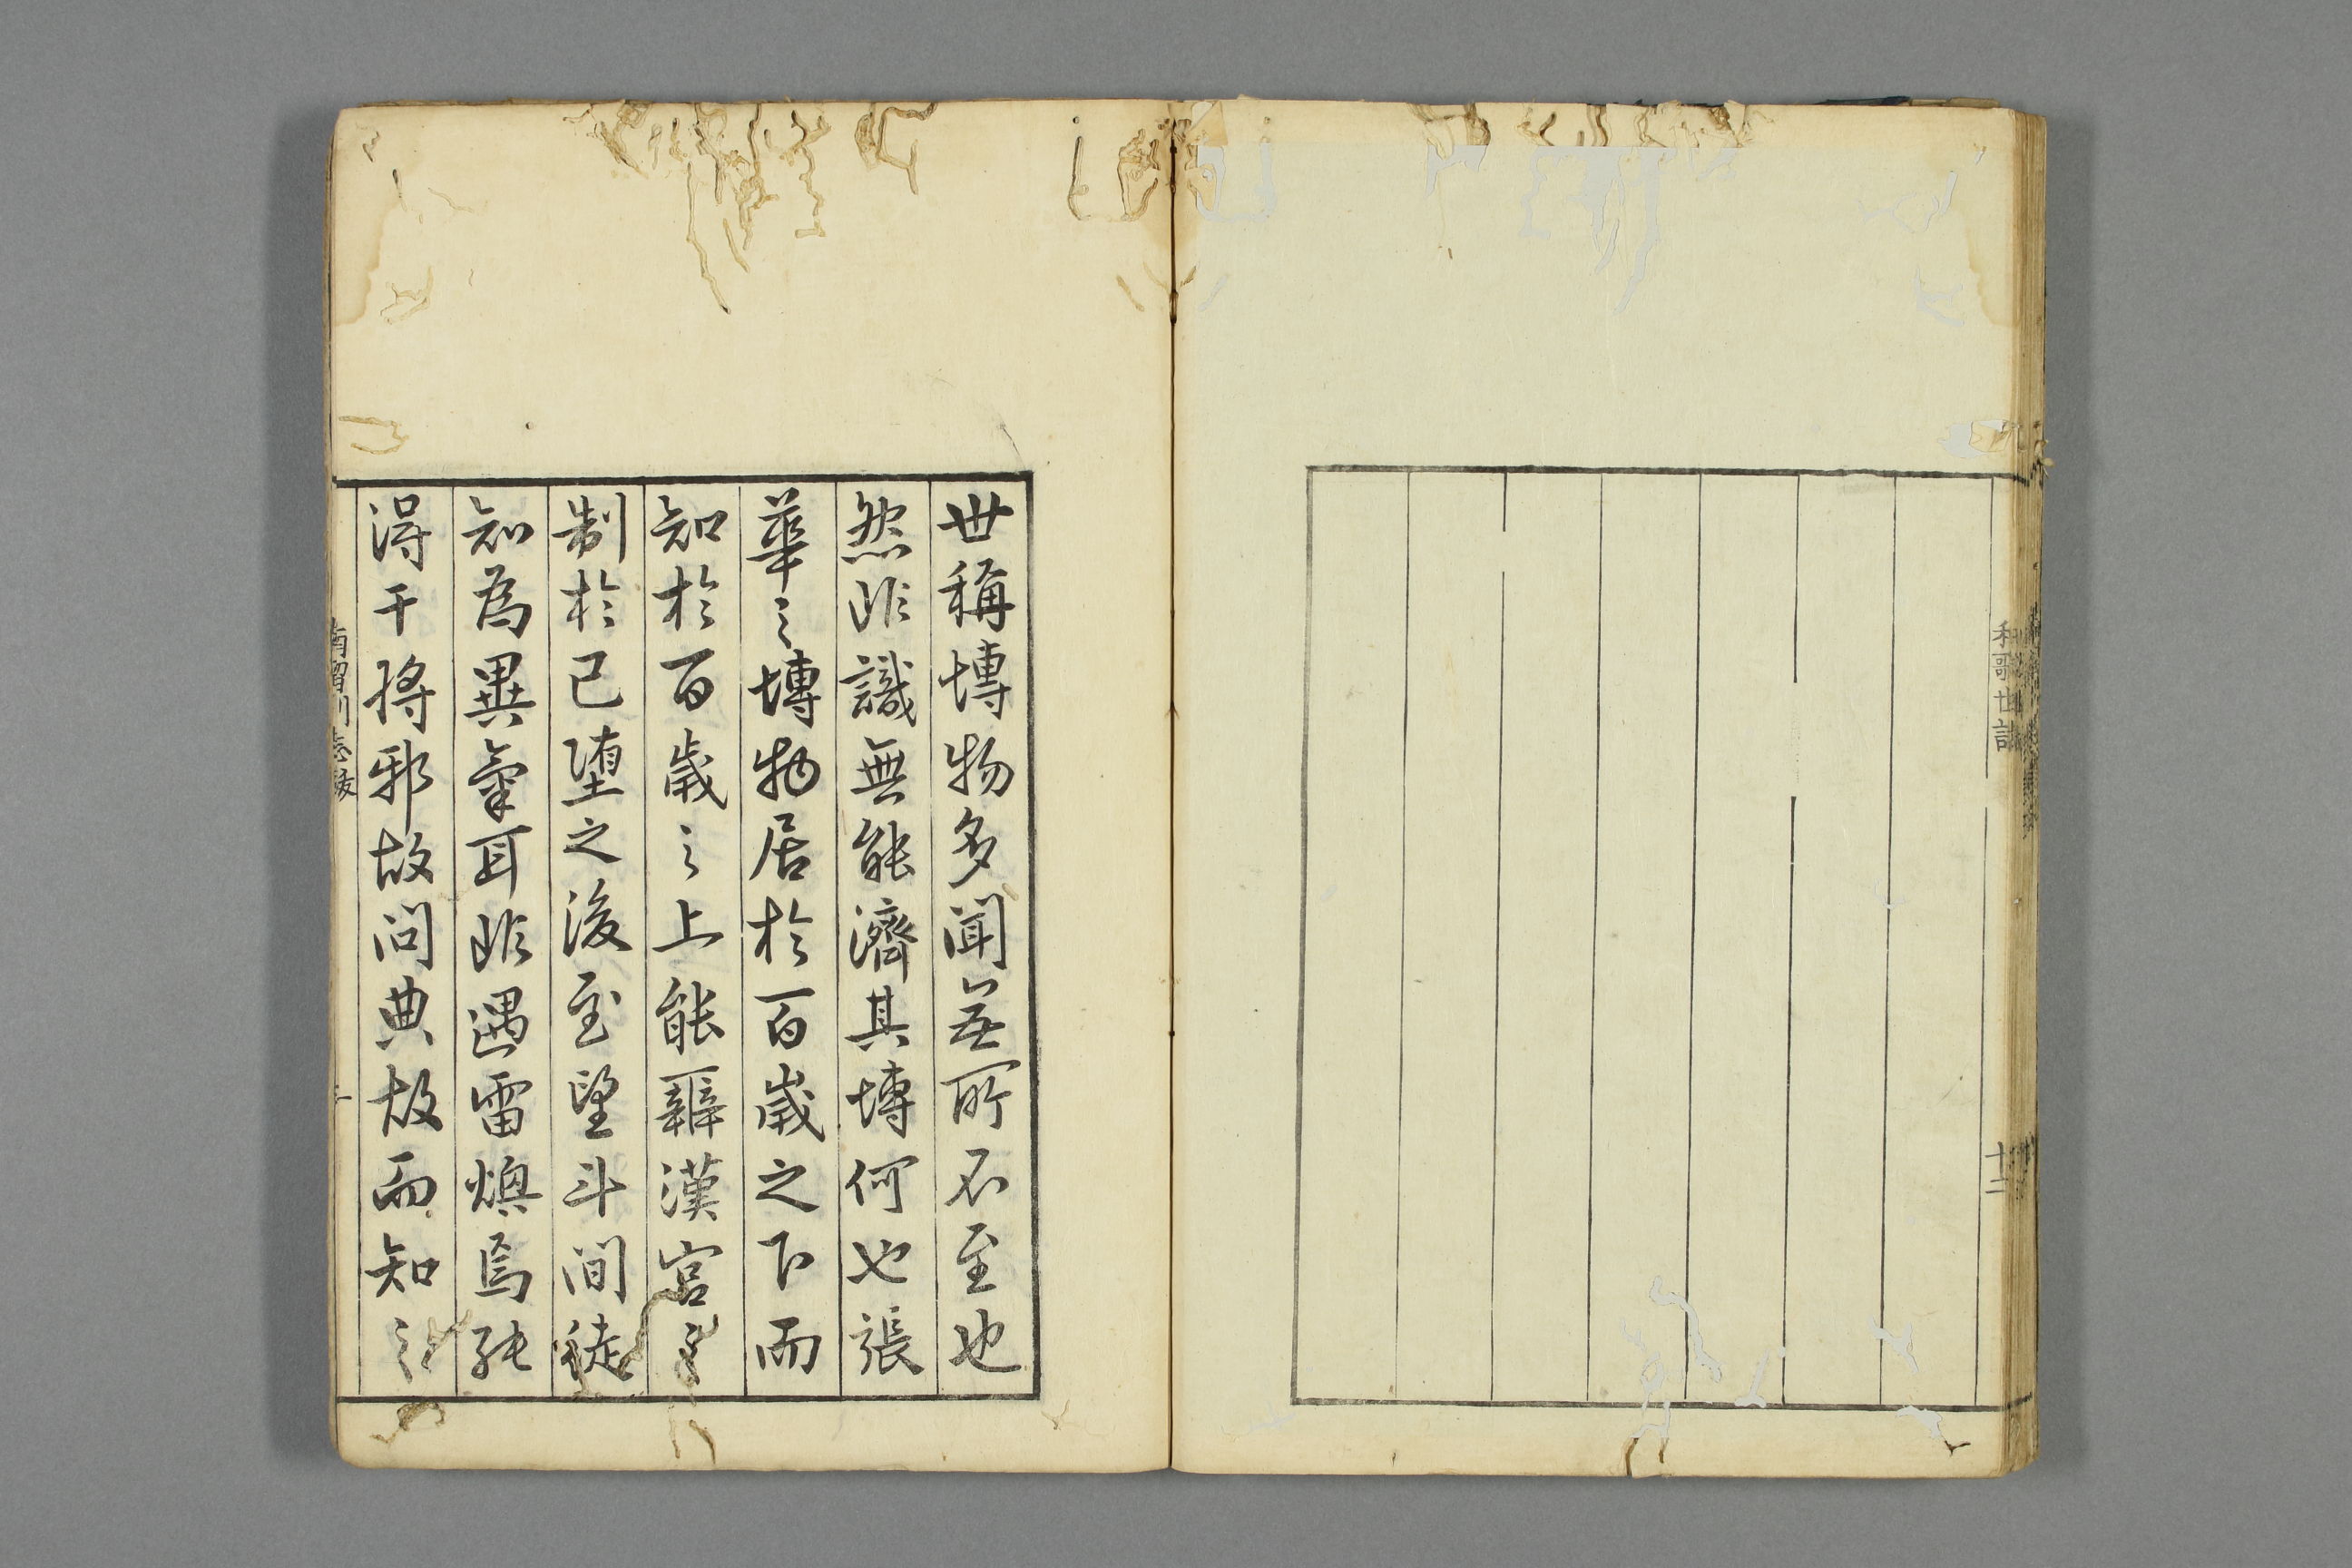 和歌世話
十二
世稱博物多聞無所不至也
然非識無能濟其博何也張
華之博物居於百歲之下而
知於百歲之上能辨漢宮之
制於已墮之後至望斗間徒
知為異氣耳非遇雷煥焉能
得干將邪故問典故而知之